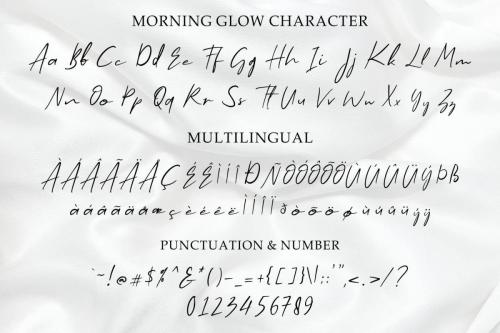 MORNING GLOW CHARACTER
Aa Bb Cc Dd Ee Ff Gg Hh Ii Jj Kk Ll Mm
Nn Oo Pp Qq Rr Ss Tt Uu Vv Ww Xx Yy Zz
MULTILINGUAL
ÀÁÂÃÄÅÇÉÊÌÍÎÐÑÒÓÔÕÖÙÚÛÜÝÞß
àáâãäåæçèéêëìíîïðòõöøùúûüýÿ
PUNCTUATION & NUMBER
`~!@#$%^&*()-_=+{[]}\|;:'",<.>/?
0123456789